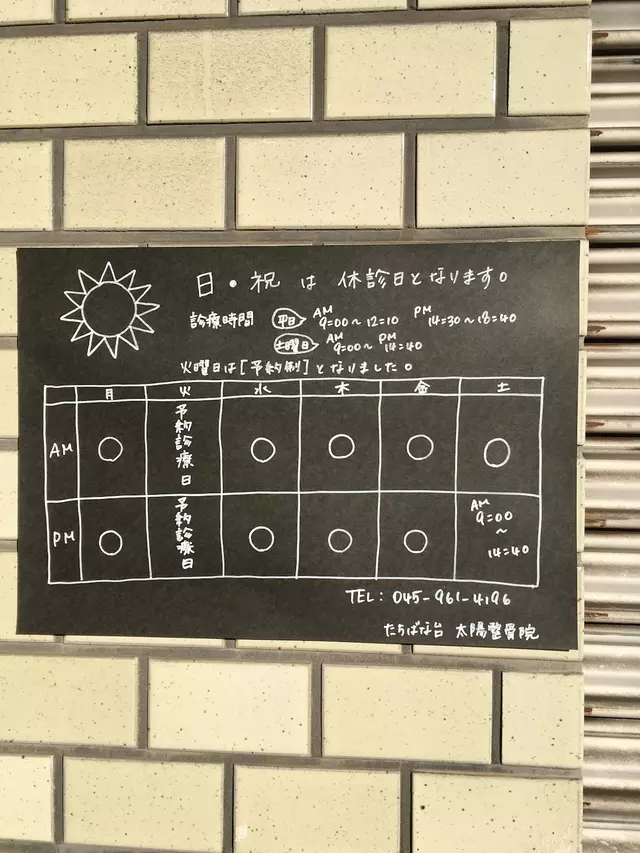 日・祝 は 休診日となります。
診療時間 平日 AM 9:00～12:10 PM 14:30～18:40
土曜日 AM 9:00～ PM 14:40
火曜日は[予約制]となりました。
月 火 水 木 金 土
AM ○ 予約診療日 ○ ○ ○ ○
PM ○ 予約診療日 ○ ○ ○ AM 9:00 ～ 14:40
TEL: 045-961-4196
たちばな台 太陽整骨院